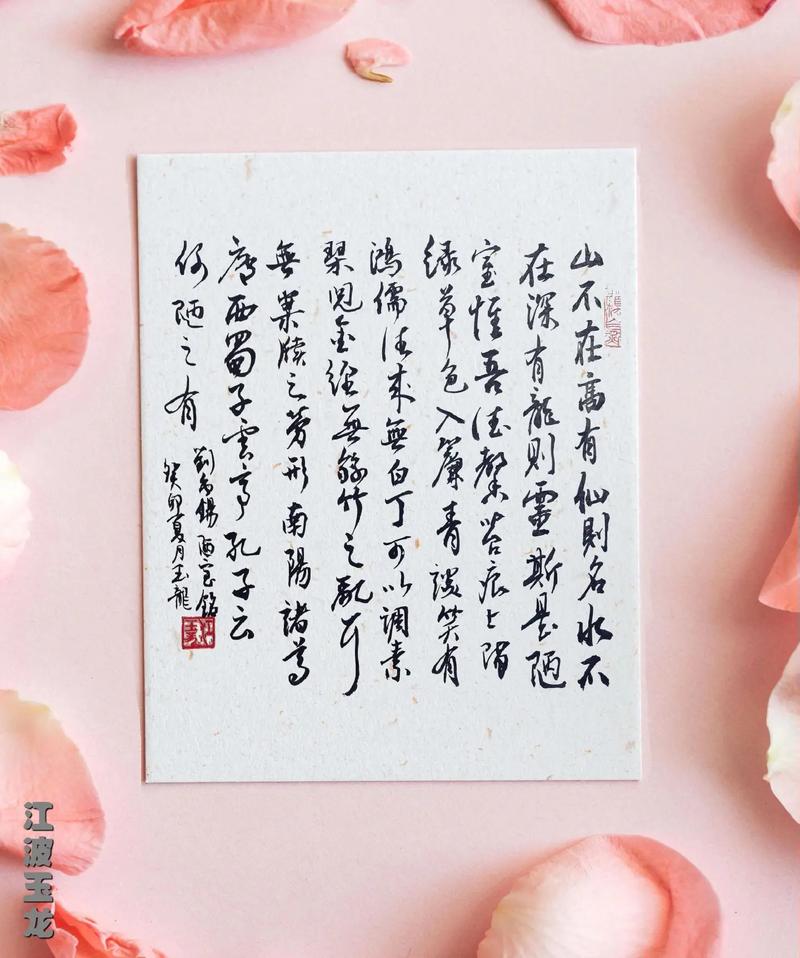 山不在高有仙則名水不
在深有龍則靈斯是陋
室惟吾德馨苔痕上階
綠草色入簾青談笑有
鴻儒往來無白丁可以調素
琴閱金經無絲竹之亂耳
無案牘之勞形南陽諸葛
廬西蜀子雲亭孔子云
何陋之有
劉禹錫陋室銘
癸卯夏月玉龍
江波玉龙